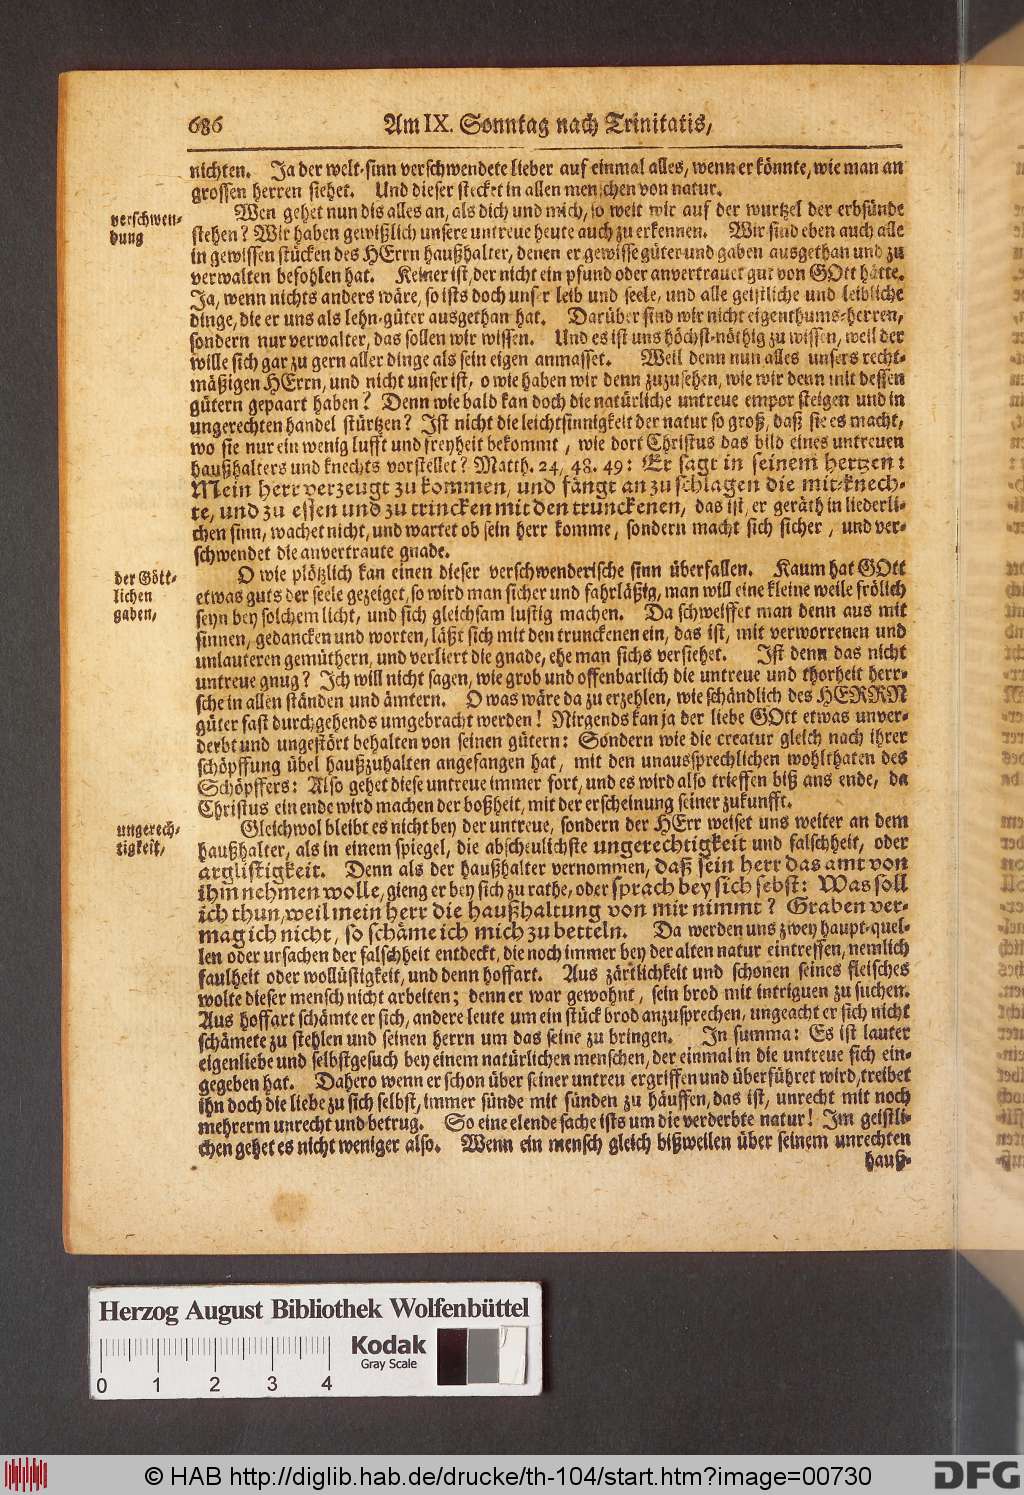 686 Am IX. Sonntag nach Trinitatis,
nichten. Ja der welt-sinn verschwendete lieber auf einmal alles, wenn er könnte, wie man an
grossen herren siehet. Und dieser stecket in allen menschen von natur.
verschwen-
dung
Wen gehet nun dis alles an, als dich und mich, so weit wir auf der wurtzel der erbsünde
stehen? Wir haben gewißlich unsere untreue heute auch zu erkennen. Wir sind eben auch alle
in gewissen stücken des HErrn haußhalter, denen er gewisse güter und gaben ausgethan und zu
verwalten befohlen hat. Keiner ist, der nicht ein pfund oder anvertrauet gut von GOtt hätte.
Ja, wenn nichts anders wäre, so ists doch unser leib und seele, und alle geistliche und leibliche
dinge, die er uns als lehn-güter ausgethan hat. Darüber sind wir nicht eigenthums-herren,
sondern nur verwalter, das sollen wir wissen. Und es ist uns höchst-nöthig zu wissen, weil der
wille sich gar zu gern aller dinge als sein eigen anmasset. Weil denn nun alles unsers recht-
mäßigen HErrn, und nicht unser ist, o wie haben wir denn zuzusehen, wie wir denn mit dessen
gütern gepaart haben? Denn wie bald kan doch die natürliche untreue empor steigen und in
ungerechten handel stürtzen? Ist nicht die leichtsinnigkeit der natur so groß, daß sie es macht,
wo sie nur ein wenig lufft und freyheit bekommt, wie dort Christus das bild eines untreuen
haußhalters und knechts vorstellet? Matth. 24, 48. 49: Er sagt in seinem hertzen:
Mein herr verzeugt zu kommen, und fängt an zu schlagen die mit-knech-
te, und zu essen und zu trincken mit den trunckenen, das ist, er geräth in liederli-
chen sinn, wachet nicht, und wartet ob sein herr komme, sondern macht sich sicher, und ver-
schwendet die anvertraute gnade.
der Gött-
lichen
gaben,
O wie plötzlich kan einen dieser verschwenderische sinn überfallen. Kaum hat GOtt
etwas guts der seele gezeiget, so wird man sicher und fahrläßig, man will eine kleine weile frölich
seyn bey solchem licht, und sich gleichsam lustig machen. Da schweiffet man denn aus mit
sinnen, gedancken und worten, läßt sich mit den trunckenen ein, das ist, mit verworrenen und
unlauteren gemüthern, und verliert die gnade, ehe man sichs versiehet. Ist denn das nicht
untreue gnug? Ich will nicht sagen, wie grob und offenbarlich die untreue und thorheit herr-
sche in allen ständen und ämtern. O was wäre da zu erzehlen, wie schändlich des HERRN
güter fast durchgehends umgebracht werden! Nirgends kan ja der liebe GOtt etwas unver-
derbt und ungestört behalten von seinen gütern: Sondern wie die creatur gleich nach ihrer
schöpffung übel haußzuhalten angefangen hat, mit den unaussprechlichen wohlthaten des
Schöpffers: Also gehet diese untreue immer fort, und es wird also trieffen biß ans ende, da
Christus ein ende wird machen der boßheit, mit der erscheinung seiner zukunfft.
ungerech-
tigkeit,
Gleichwol bleibt es nicht bey der untreue, sondern der HErr weiset uns weiter an dem
haußhalter, als in einem spiegel, die abscheulichste ungerechtigkeit und falschheit, oder
arglistigkeit. Denn als der haußhalter vernommen, daß sein herr das amt von
ihm nehmen wolle, gieng er bey sich zu rathe, oder sprach bey sich sebst: Was soll
ich thun, weil mein herr die haußhaltung von mir nimmt? Graben ver-
mag ich nicht, so schäme ich mich zu betteln. Da werden uns zwey haupt-quel-
len oder ursachen der falschheit entdeckt, die noch immer bey der alten natur eintreffen, nemlich
faulheit oder wollüstigkeit, und denn hoffart. Aus zärtlichkeit und schonen seines fleisches
wolte dieser mensch nicht arbeiten; denn er war gewohnt, sein brod mit intriguen zu suchen.
Aus hoffart schämte er sich, andere leute um ein stück brod anzusprechen, ungeacht er sich nicht
schämete zu stehlen und seinen herrn um das seine zu bringen. In summa: Es ist lauter
eigenliebe und selbstgesuch bey einem natürlichen menschen, der einmal in die untreue sich ein-
gegeben hat. Dahero wenn er schon über seiner untreu ergriffen und überführet wird, treibet
ihn doch die liebe zu sich selbst, immer sünde mit sünden zu häuffen, das ist, unrecht mit noch
mehrerm unrecht und betrug. So eine elende sache ists um die verderbte natur! Im geistli-
chen gehet es nicht weniger also. Wenn ein mensch gleich bißweilen über seinem unrechten
hauß-
Herzog August Bibliothek Wolfenbüttel
Kodak
Gray Scale
0 1 2 3 4
© HAB http://diglib.hab.de/drucke/th-104/start.htm?image=00730
DFG